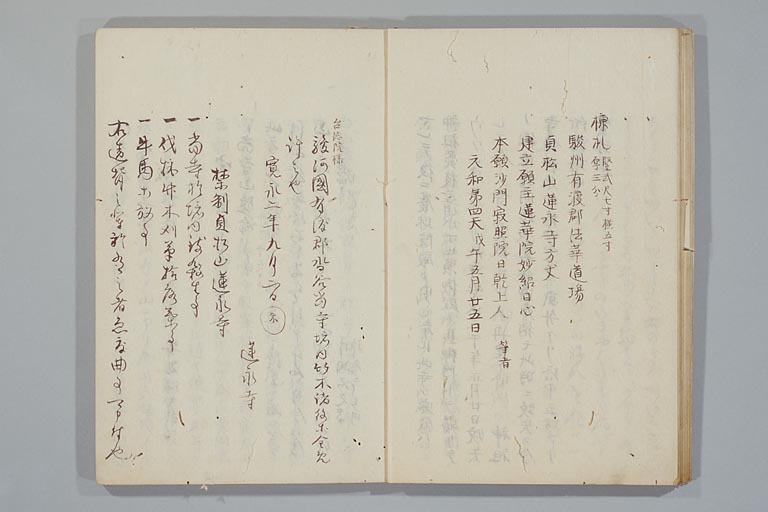 棟札 竪弐尺七寸横五寸
厚三分
駿州有渡郡法華道場
貞松山蓮永寺方丈
建立願主蓮華院妙紹日心
本願沙門寂照院日乾上人 筆者
元和第四天戊午五月廿五日
台徳院様
駿河國有渡郡沓谷当寺境内竹木諸役等令免
許之也
寛永二年九月二日 蓮永寺
禁制貞松山蓮永寺
一当寺於境内殺生事
一伐採竹木刈草捨塵芥事
一牛馬出放事
右違背之輩於有之者急度曲事可申付也